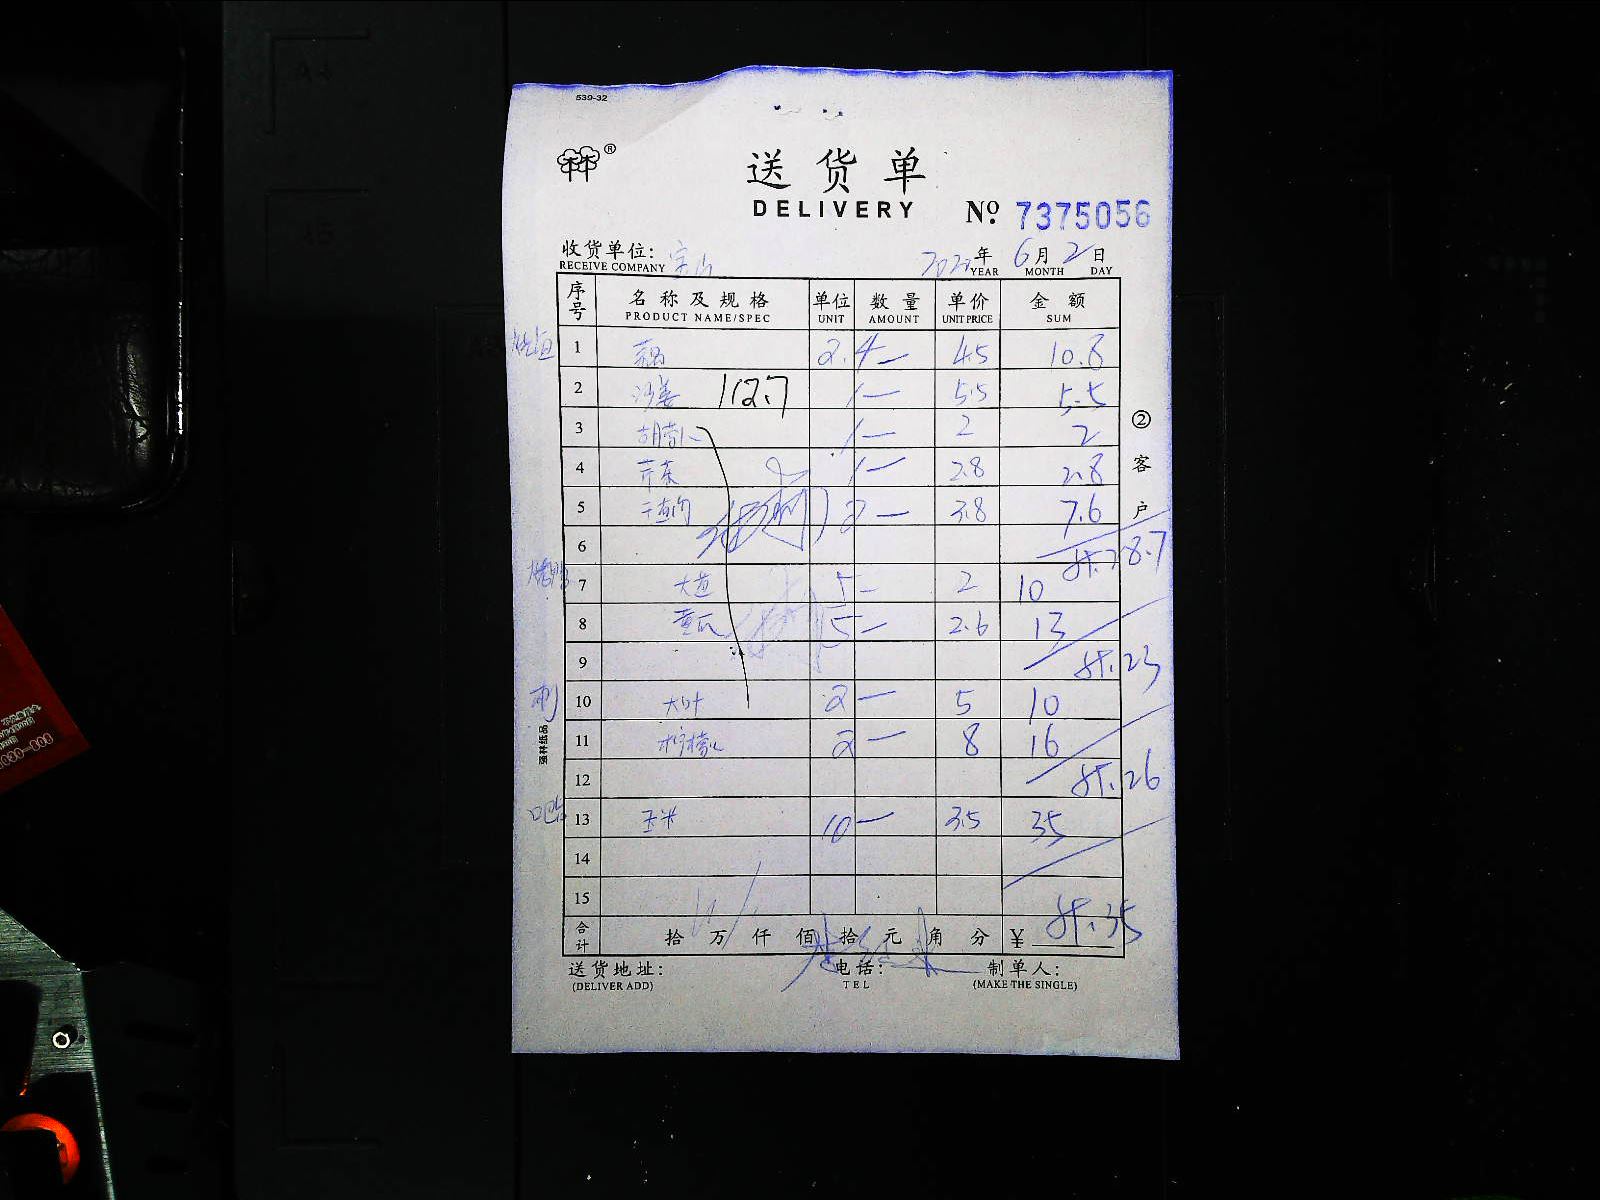 539-32
®
送货单
DELIVERY
Nº 7375056
收货单位:
RECEIVE COMPANY
2022年 6月 2日
YEAR MONTH DAY
序号 名称及规格 单位 数量 单价 金额
PRODUCT NAME/SPEC UNIT AMOUNT UNIT PRICE SUM
1 2.4一 4.5 10.8
2 沙姜 112.7 1一 5.5 5.5
3 胡萝卜 1一 2 2
4 芹菜 1一 2.8 2.8
5 2一 3.8 7.6
6 28.7
7 5一 2 10
8 黄瓜 5一 2.6 13
9 23
10 大叶 2一 5 10
11 2一 8 16
12 26
13 玉米 10一 3.5 35
14
15
合计 拾 万 仟 佰 拾 元 角 分 ¥ 35
送货地址: 电话: 制单人:
(DELIVER ADD) TEL (MAKE THE SINGLE)
②客户
强林纸品